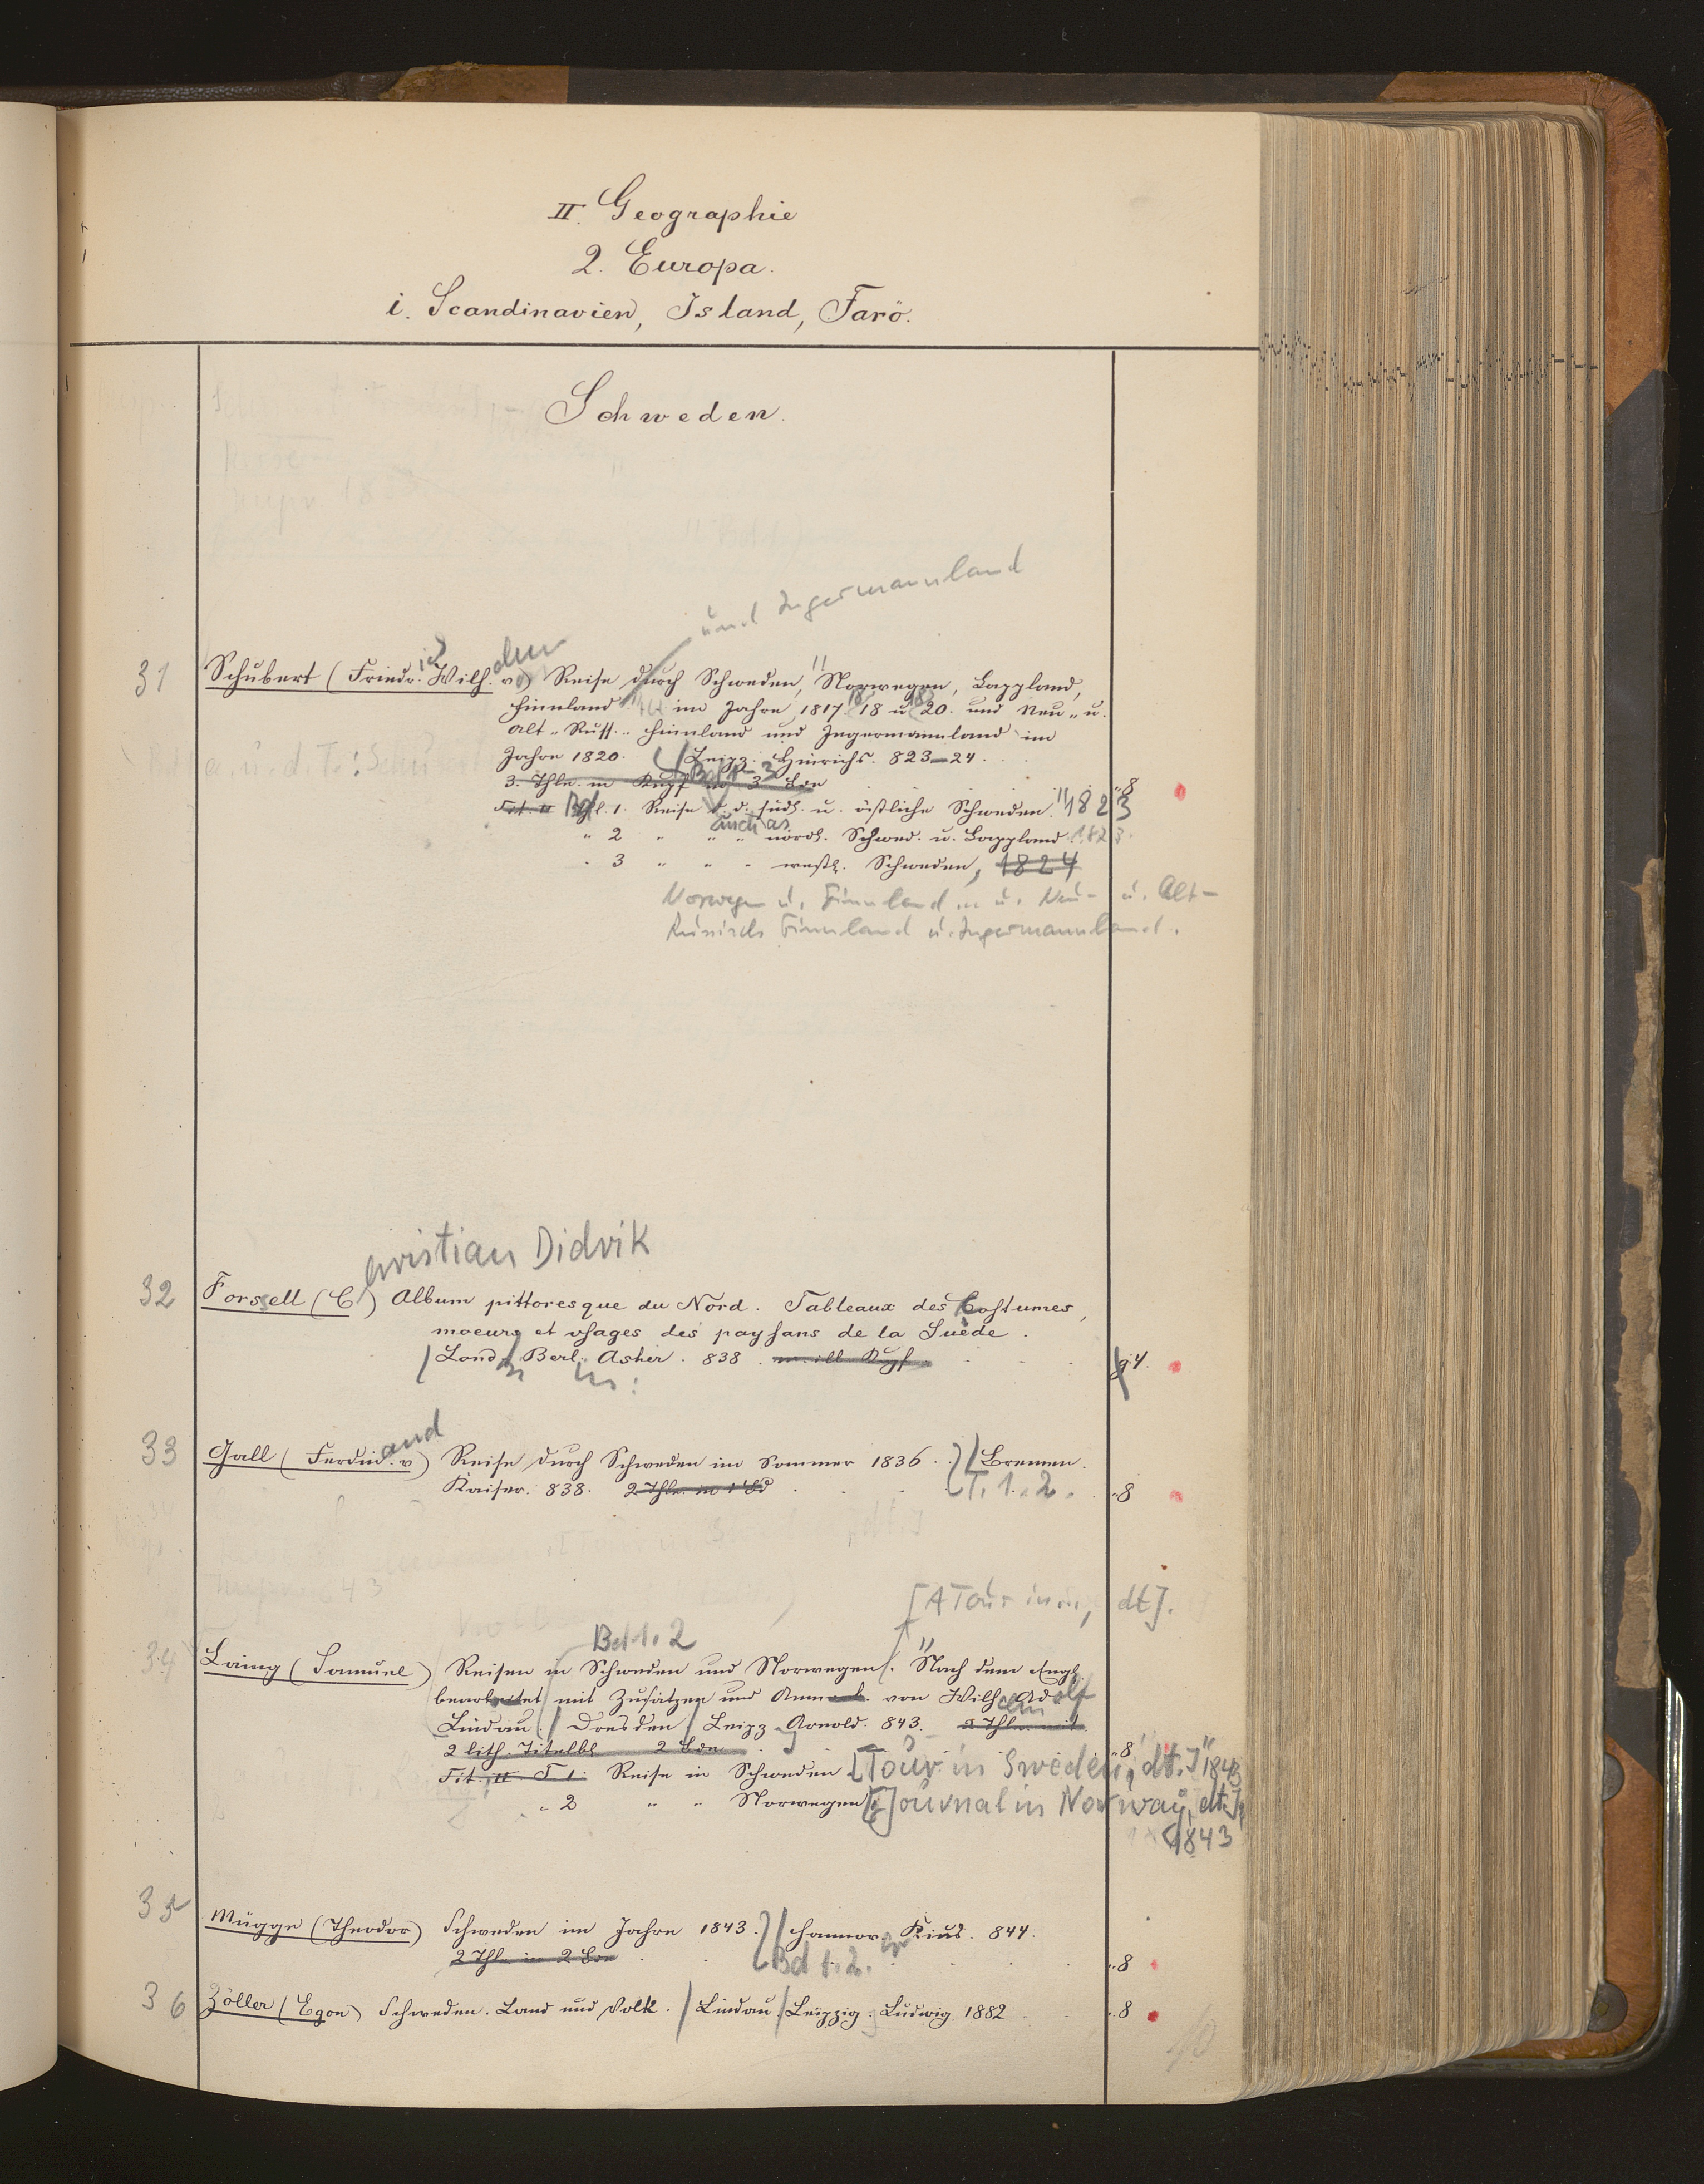 II. Geographie
2. Europa.
i. Scandinavien, Island, Farö.
Schweden.
und Ingermannland
31 Schubert (Friedr.ich Wilh.elm v.) Reise durch Schweden, Norwegen, Lappland,
Finnland im Jahre 1817. 18 u 20. und Neu- u.
Alt-Russ. Finnland und Ingermannland im
Jahre 1820. Leipz. Hinrichs. 823-24.
3. Thle. m Kupf in 3 Bde "8
Tit. II Thl. 1. Reise d. d. südl. u. östliche Schweden. 1823
" 2 " " " nördl. Schwed. u. Lappland 1823.
" 3 " " " westl. Schweden, 1824
Norwegen u. Finnland u. Neu- u. Alt-
Russisch Finnland u. Ingermannland.
hristian Didrik
32 Forssell (C) Album pittoresque du Nord. Tableaux des Costumes,
moeurs et usages des paysans de la Suède.
Lond. Berl. Asher. 838. m. ill. Kupf g4.
33 Gall (Ferdinand v) Reise durch Schweden im Sommer 1836. Bremen.
Kaiser. 838. 2 Thle. in 1 Bd T. 1. 2. "8
[A Tour in, dt].
Bd 1. 2
34 Laing (Samuel) Reisen in Schweden und Norwegen. Nach dem Engl.
bearbeitet mit Zusätzen und Anmerk. von Wilhelm Adolf
Lindau. Dresden Leipz Arnold. 843. 2 Thle. mit
2 lith. Titelbl 2 Bde "8
Tit. II T 1. Reise in Schweden [Tour in Sweden, dt.] 1843
" 2 " " Norwegen [Journal in Norway, dt.],
1843
35 Mügge (Theodor) Schweden im Jahre 1843. Hannover Kius. 844.
2 Thl. in 2 Bde Bd 1.2. "8
36 Zöller (Egon) Schweden. Land und Volk. Lindau Leipzig: Ludwig. 1882 "8